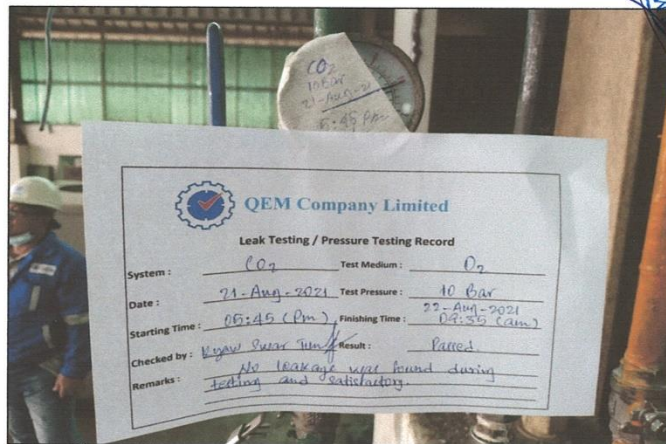 CO2
10 Bar
21-Aug-21
05:45 Pm
QEM Company Limited
Leak Testing / Pressure Testing Record
System : CO2 Test Medium : O2
Date : 21-Aug-2021 Test Pressure : 10 Bar
Starting Time : 05:45 (Pm) Finishing Time : 22-Aug-2021 09:35 (am)
Checked by : Kyaw Swar Tun Result : Passed
Remarks : No leakage was found during
testing and satisfactory.